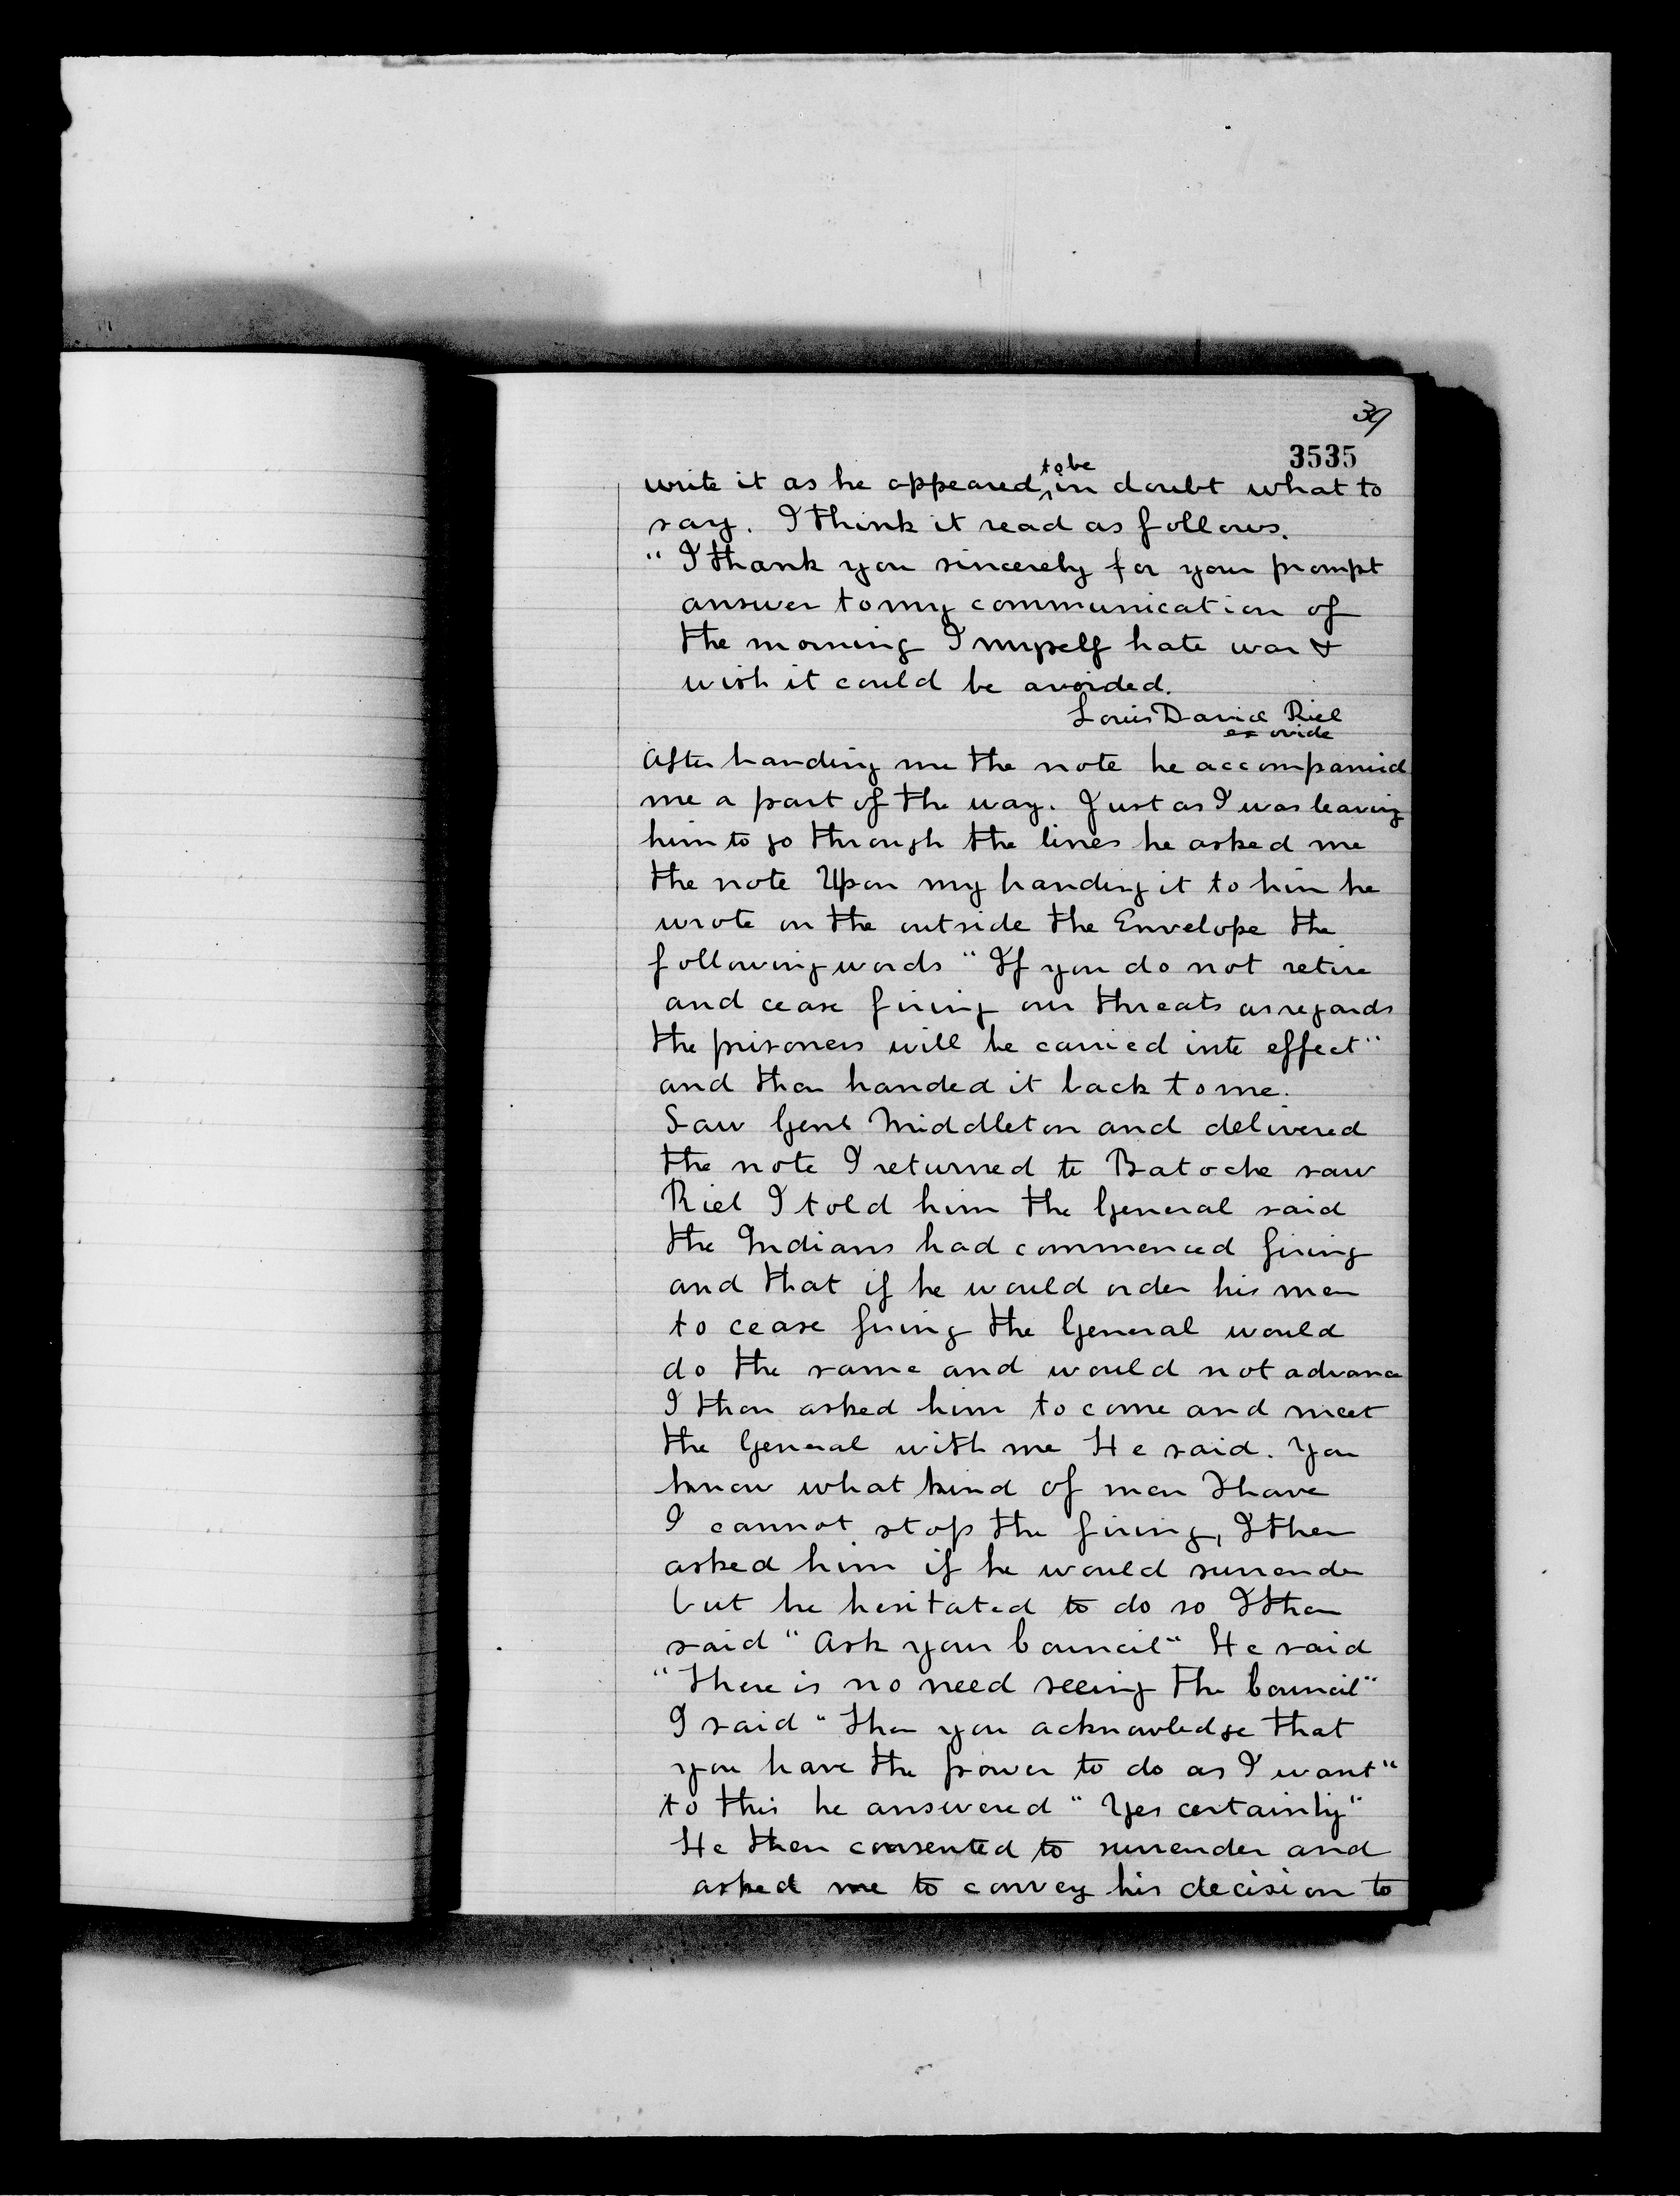 39
3535
write it as he appeared to be in doubt what to
say. I think it read as follows.
" I thank you sincerely for your prompt
answer to my communication of
the morning I myself hate war &
wish it could be avoided.
Louis David Riel
exovide
After handing me the note he accompanied
me a part of the way. Just as I was leaving
him to go through the lines he asked me
the note Upon my handing it to him he
wrote on the outside the Envelope the
following words " If you do not retire
and cease firing our threats as regards
the prisoners will be carried into effect "
and then handed it back to me.
Saw Genl Middleton and delivered
the note I returned to Batoche saw
Riel I told him the General said
the Indians had commenced firing
and that if he would order his men
to cease firing the General would
do the same and would not advance
I then asked him to come and meet
the General with me He said. You
know what kind of men I have
I cannot stop the firing, I then
asked him if he would surrender
but he hesitated to do so I then
said " Ask your Council " He said
" There is no need seeing the Council "
I said " Then you acknowledge that
you have the power to do as I want "
to this he answered " Yes certainly "
He then consented to surrender and
asked me to convey his decision to